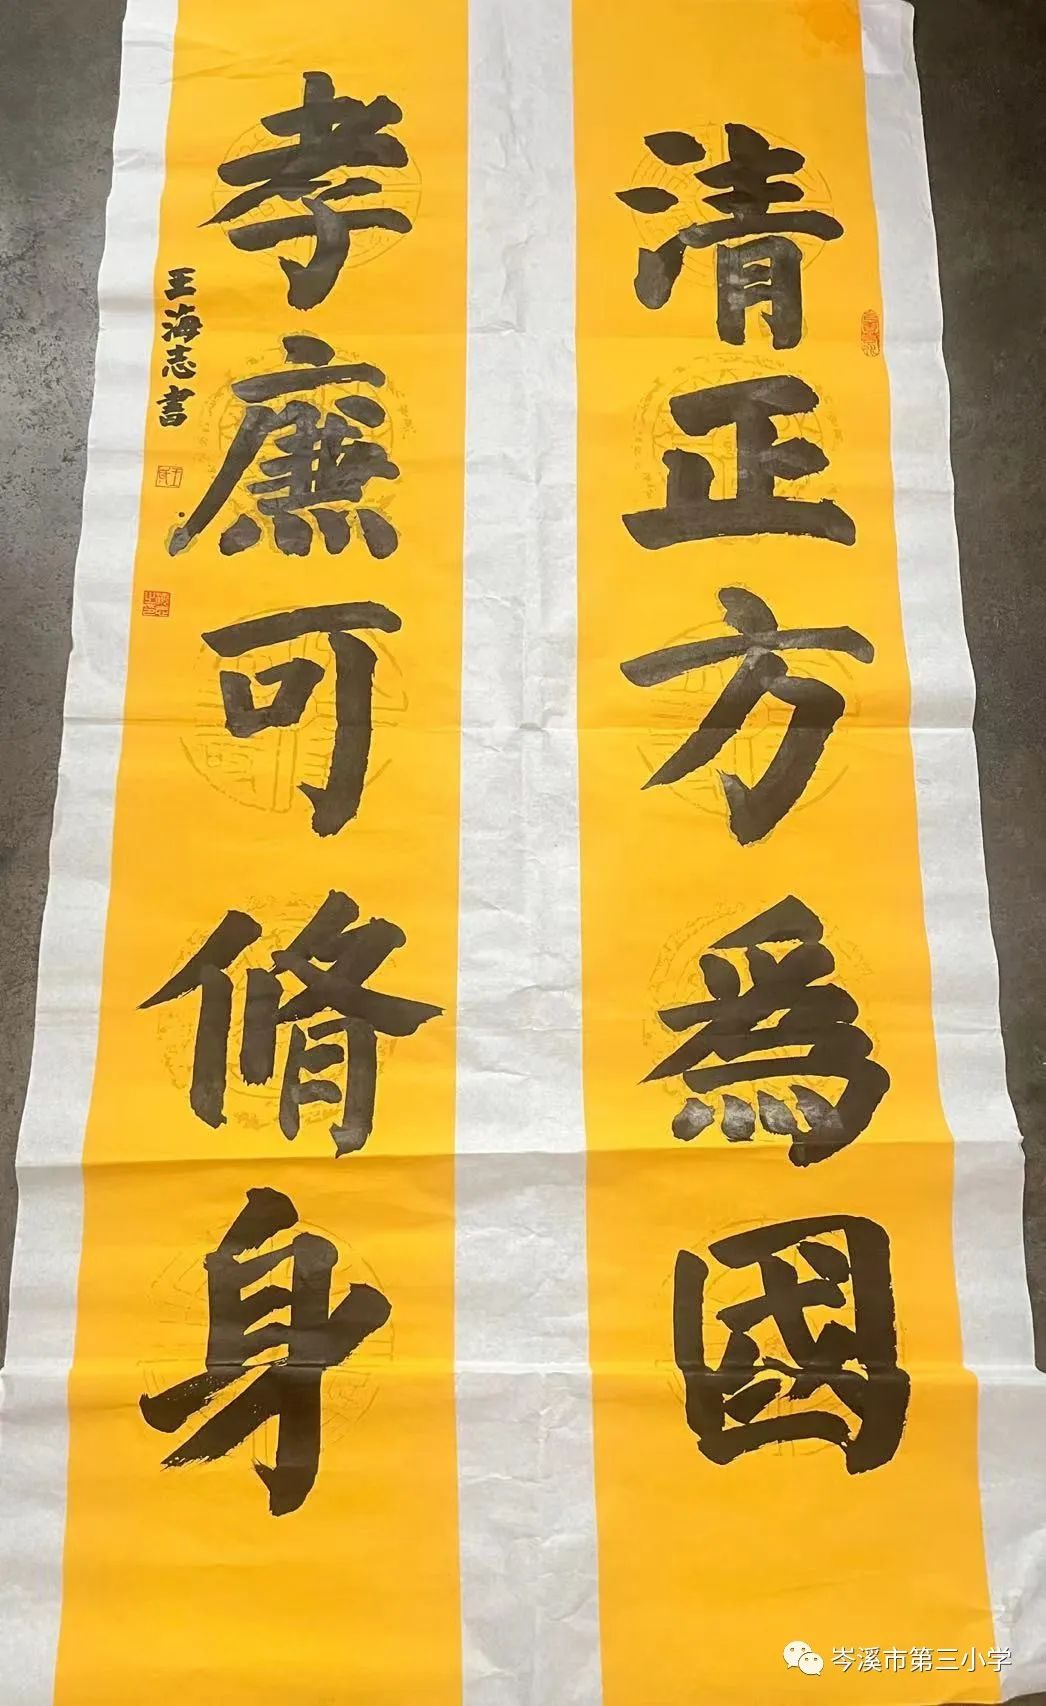 清正方爲國
孝廉可脩身
王海志書
岑溪市第三小学